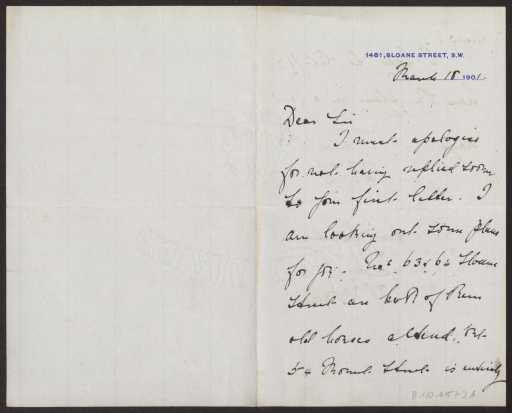 148A, SLOANE STREET, S.W.
March 18 1901.
Dear Sir
I must apologise
for not having replied sooner
to your first letter. I
am looking out some plans
for you. Nos 63 & 62 Sloane
Street are both of them
old houses altered, but
54 Mount Street is entirely